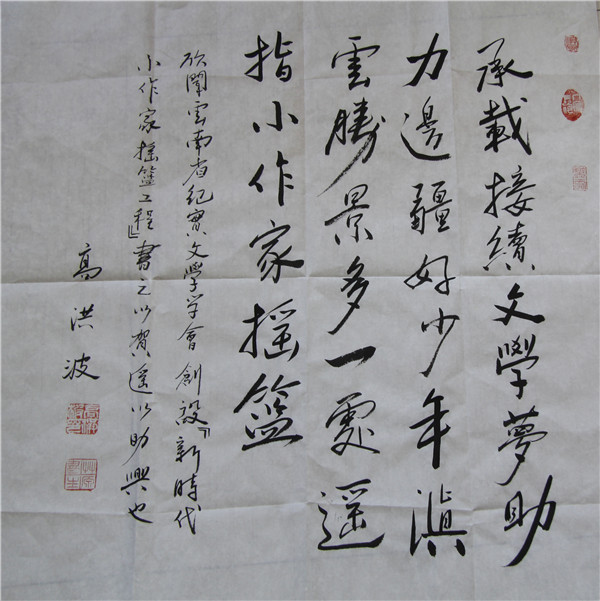 承載接續文學夢助
力邊疆好少年滇
雲勝景多一處遥
指小作家摇籃
欣聞雲南省紀實文學學會創設『新時代
小作家摇籃工程』書之以賀遥以助興也
高洪波